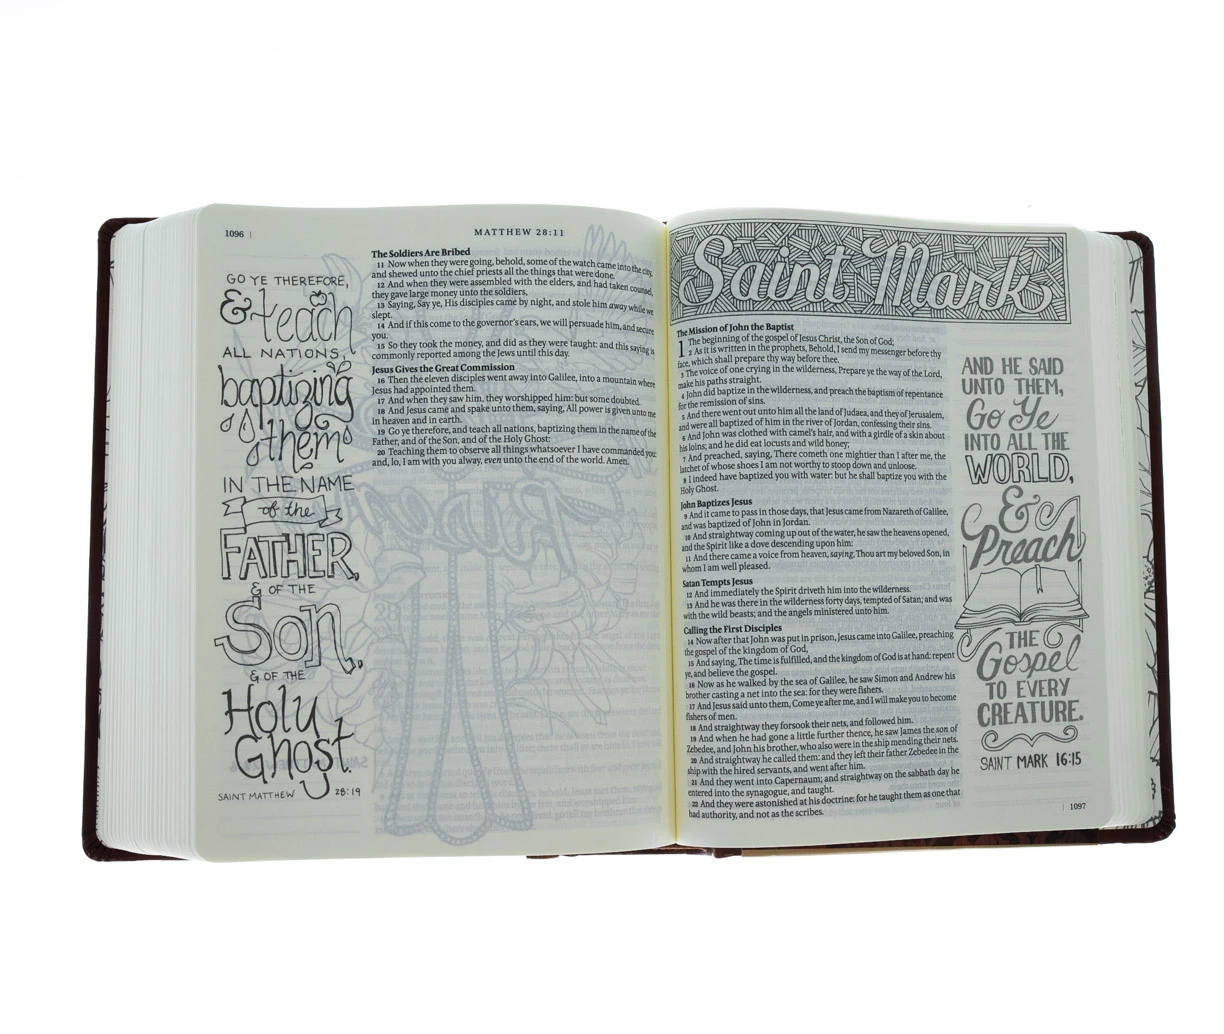 1096 |
MATTHEW 28:11
GO YE THEREFORE,
& teach
ALL NATIONS,
baptizing
them
IN THE NAME
of the
FATHER,
& OF THE
Son,
& OF THE
Holy
Ghost.
SAINT MATTHEW 28:19
The Soldiers Are Bribed
11 Now when they were going, behold, some of the watch came into the city,
and shewed unto the chief priests all the things that were done.
12 And when they were assembled with the elders, and had taken counsel,
they gave large money unto the soldiers,
13 Saying, Say ye, His disciples came by night, and stole him away while we
slept.
14 And if this come to the governor's ears, we will persuade him, and secure
you.
15 So they took the money, and did as they were taught: and this saying is
commonly reported among the Jews until this day.
Jesus Gives the Great Commission
16 Then the eleven disciples went away into Galilee, into a mountain where
Jesus had appointed them.
17 And when they saw him, they worshipped him: but some doubted.
18 And Jesus came and spake unto them, saying, All power is given unto me
in heaven and in earth.
19 Go ye therefore, and teach all nations, baptizing them in the name of the
Father, and of the Son, and of the Holy Ghost:
20 Teaching them to observe all things whatsoever I have commanded you:
and, lo, I am with you alway, even unto the end of the world. Amen.
Saint Mark
The Mission of John the Baptist
1 The beginning of the gospel of Jesus Christ, the Son of God;
2 As it is written in the prophets, Behold, I send my messenger before thy
face, which shall prepare thy way before thee.
3 The voice of one crying in the wilderness, Prepare ye the way of the Lord,
make his paths straight.
4 John did baptize in the wilderness, and preach the baptism of repentance
for the remission of sins.
5 And there went out unto him all the land of Judaea, and they of Jerusalem,
and were all baptized of him in the river of Jordan, confessing their sins.
6 And John was clothed with camel's hair, and with a girdle of a skin about
his loins; and he did eat locusts and wild honey;
7 And preached, saying, There cometh one mightier than I after me, the
latchet of whose shoes I am not worthy to stoop down and unloose.
8 I indeed have baptized you with water: but he shall baptize you with the
Holy Ghost.
John Baptizes Jesus
9 And it came to pass in those days, that Jesus came from Nazareth of Galilee,
and was baptized of John in Jordan.
10 And straightway coming up out of the water, he saw the heavens opened,
and the Spirit like a dove descending upon him:
11 And there came a voice from heaven, saying, Thou art my beloved Son, in
whom I am well pleased.
Satan Tempts Jesus
12 And immediately the Spirit driveth him into the wilderness.
13 And he was there in the wilderness forty days, tempted of Satan; and was
with the wild beasts; and the angels ministered unto him.
Calling the First Disciples
14 Now after that John was put in prison, Jesus came into Galilee, preaching
the gospel of the kingdom of God,
15 And saying, The time is fulfilled, and the kingdom of God is at hand: repent
ye, and believe the gospel.
16 Now as he walked by the sea of Galilee, he saw Simon and Andrew his
brother casting a net into the sea: for they were fishers.
17 And Jesus said unto them, Come ye after me, and I will make you to become
fishers of men.
18 And straightway they forsook their nets, and followed him.
19 And when he had gone a little further thence, he saw James the son of
Zebedee, and John his brother, who also were in the ship mending their nets.
20 And straightway he called them: and they left their father Zebedee in the
ship with the hired servants, and went after him.
21 And they went into Capernaum; and straightway on the sabbath day he
entered into the synagogue, and taught.
22 And they were astonished at his doctrine: for he taught them as one that
had authority, and not as the scribes.
AND HE SAID
UNTO THEM,
Go Ye
INTO ALL THE
WORLD,
&
Preach
THE
Gospel
TO EVERY
CREATURE.
SAINT MARK 16:15
| 1097